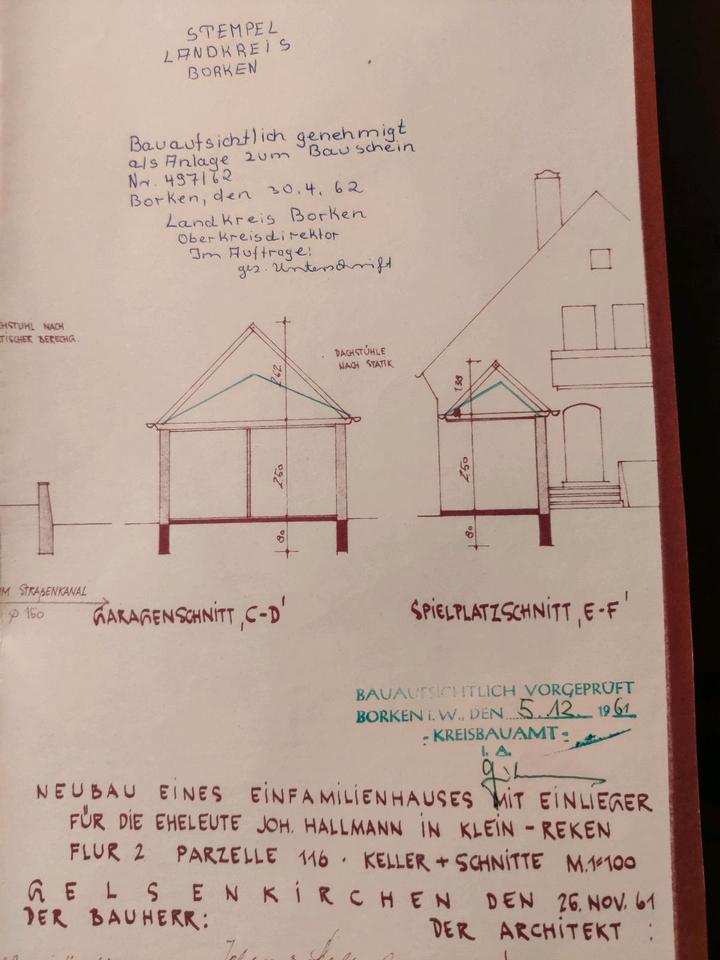 STEMPEL
LANDKREIS
BORKEN
Bauaufsichtlich genehmigt
als Anlage zum Bauschein
Nr. 497/62
Borken, den 30.4.62
Landkreis Borken
Oberkreisdirektor
Im Auftrage:
gez. Unterschrift
CHSTUHL NACH
TISCHER BERECHG.
DACHSTÜHLE
NACH STATIK
262
250
80
138
250
80
M STRAßENKANAL
φ 150
GARAGENSCHNITT ‚C-D'
SPIELPLATZSCHNITT ‚E-F'
BAUAUFSICHTLICH VORGEPRÜFT
BORKEN i. W., DEN 5.12. 1961
- KREISBAUAMT -
I. A.
NEUBAU EINES EINFAMILIENHAUSES MIT EINLIEGER
FÜR DIE EHELEUTE JOH. HALLMANN IN KLEIN - REKEN
FLUR 2 PARZELLE 116 · KELLER + SCHNITTE M.1=100
GELSENKIRCHEN DEN 26. NOV. 61
DER BAUHERR: DER ARCHITEKT :